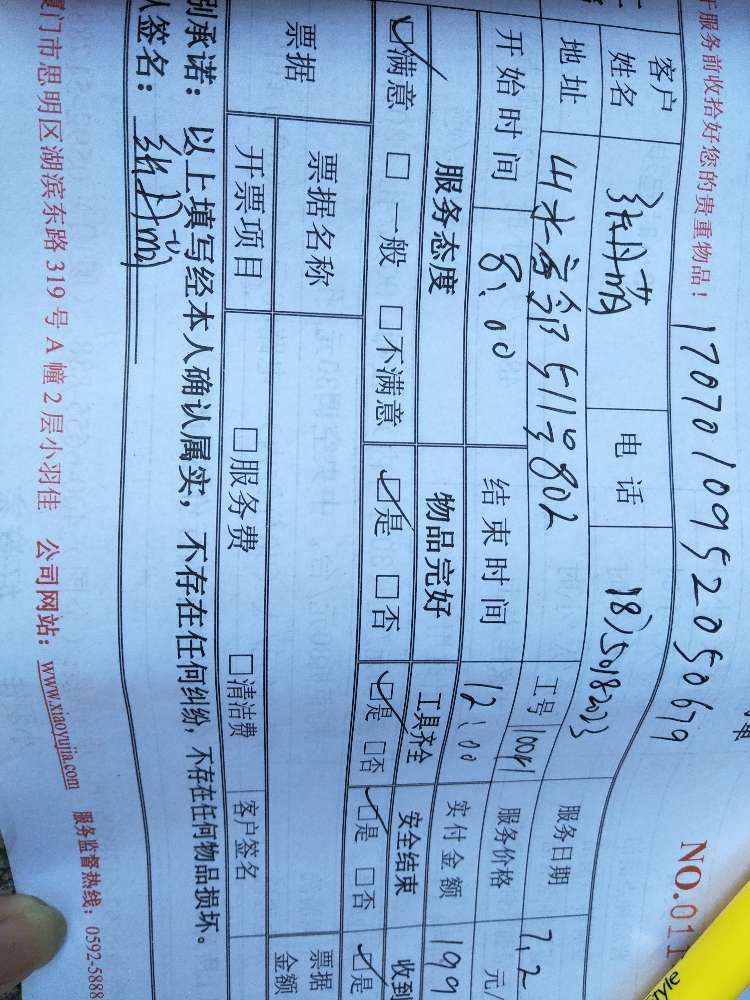 于服务前收拾好您的贵重物品！ 1707010952050679 NO.011
客户姓名 张丹萌 电话 服务日期 7.2
地址 山水 511号802 工号 服务价格 元/
开始时间 8:00 结束时间 12:00 实付金额 199
服务态度 物品完好 工具齐全 安全结束 收到
☑满意 □一般 □不满意 ☑是 □否 ☑是 □否 ☑是 □否 ☑是
票据 票据名称 票据金额
开票项目 □服务费 □清洁费 客户签名
别承诺：以上填写经本人确认属实，不存在任何纠纷，不存在任何物品损坏。
人签名：
厦门市思明区湖滨东路319号A幢2层小羽佳 公司网站：www.xiaoyujia.com 服务监督热线：0592-5888